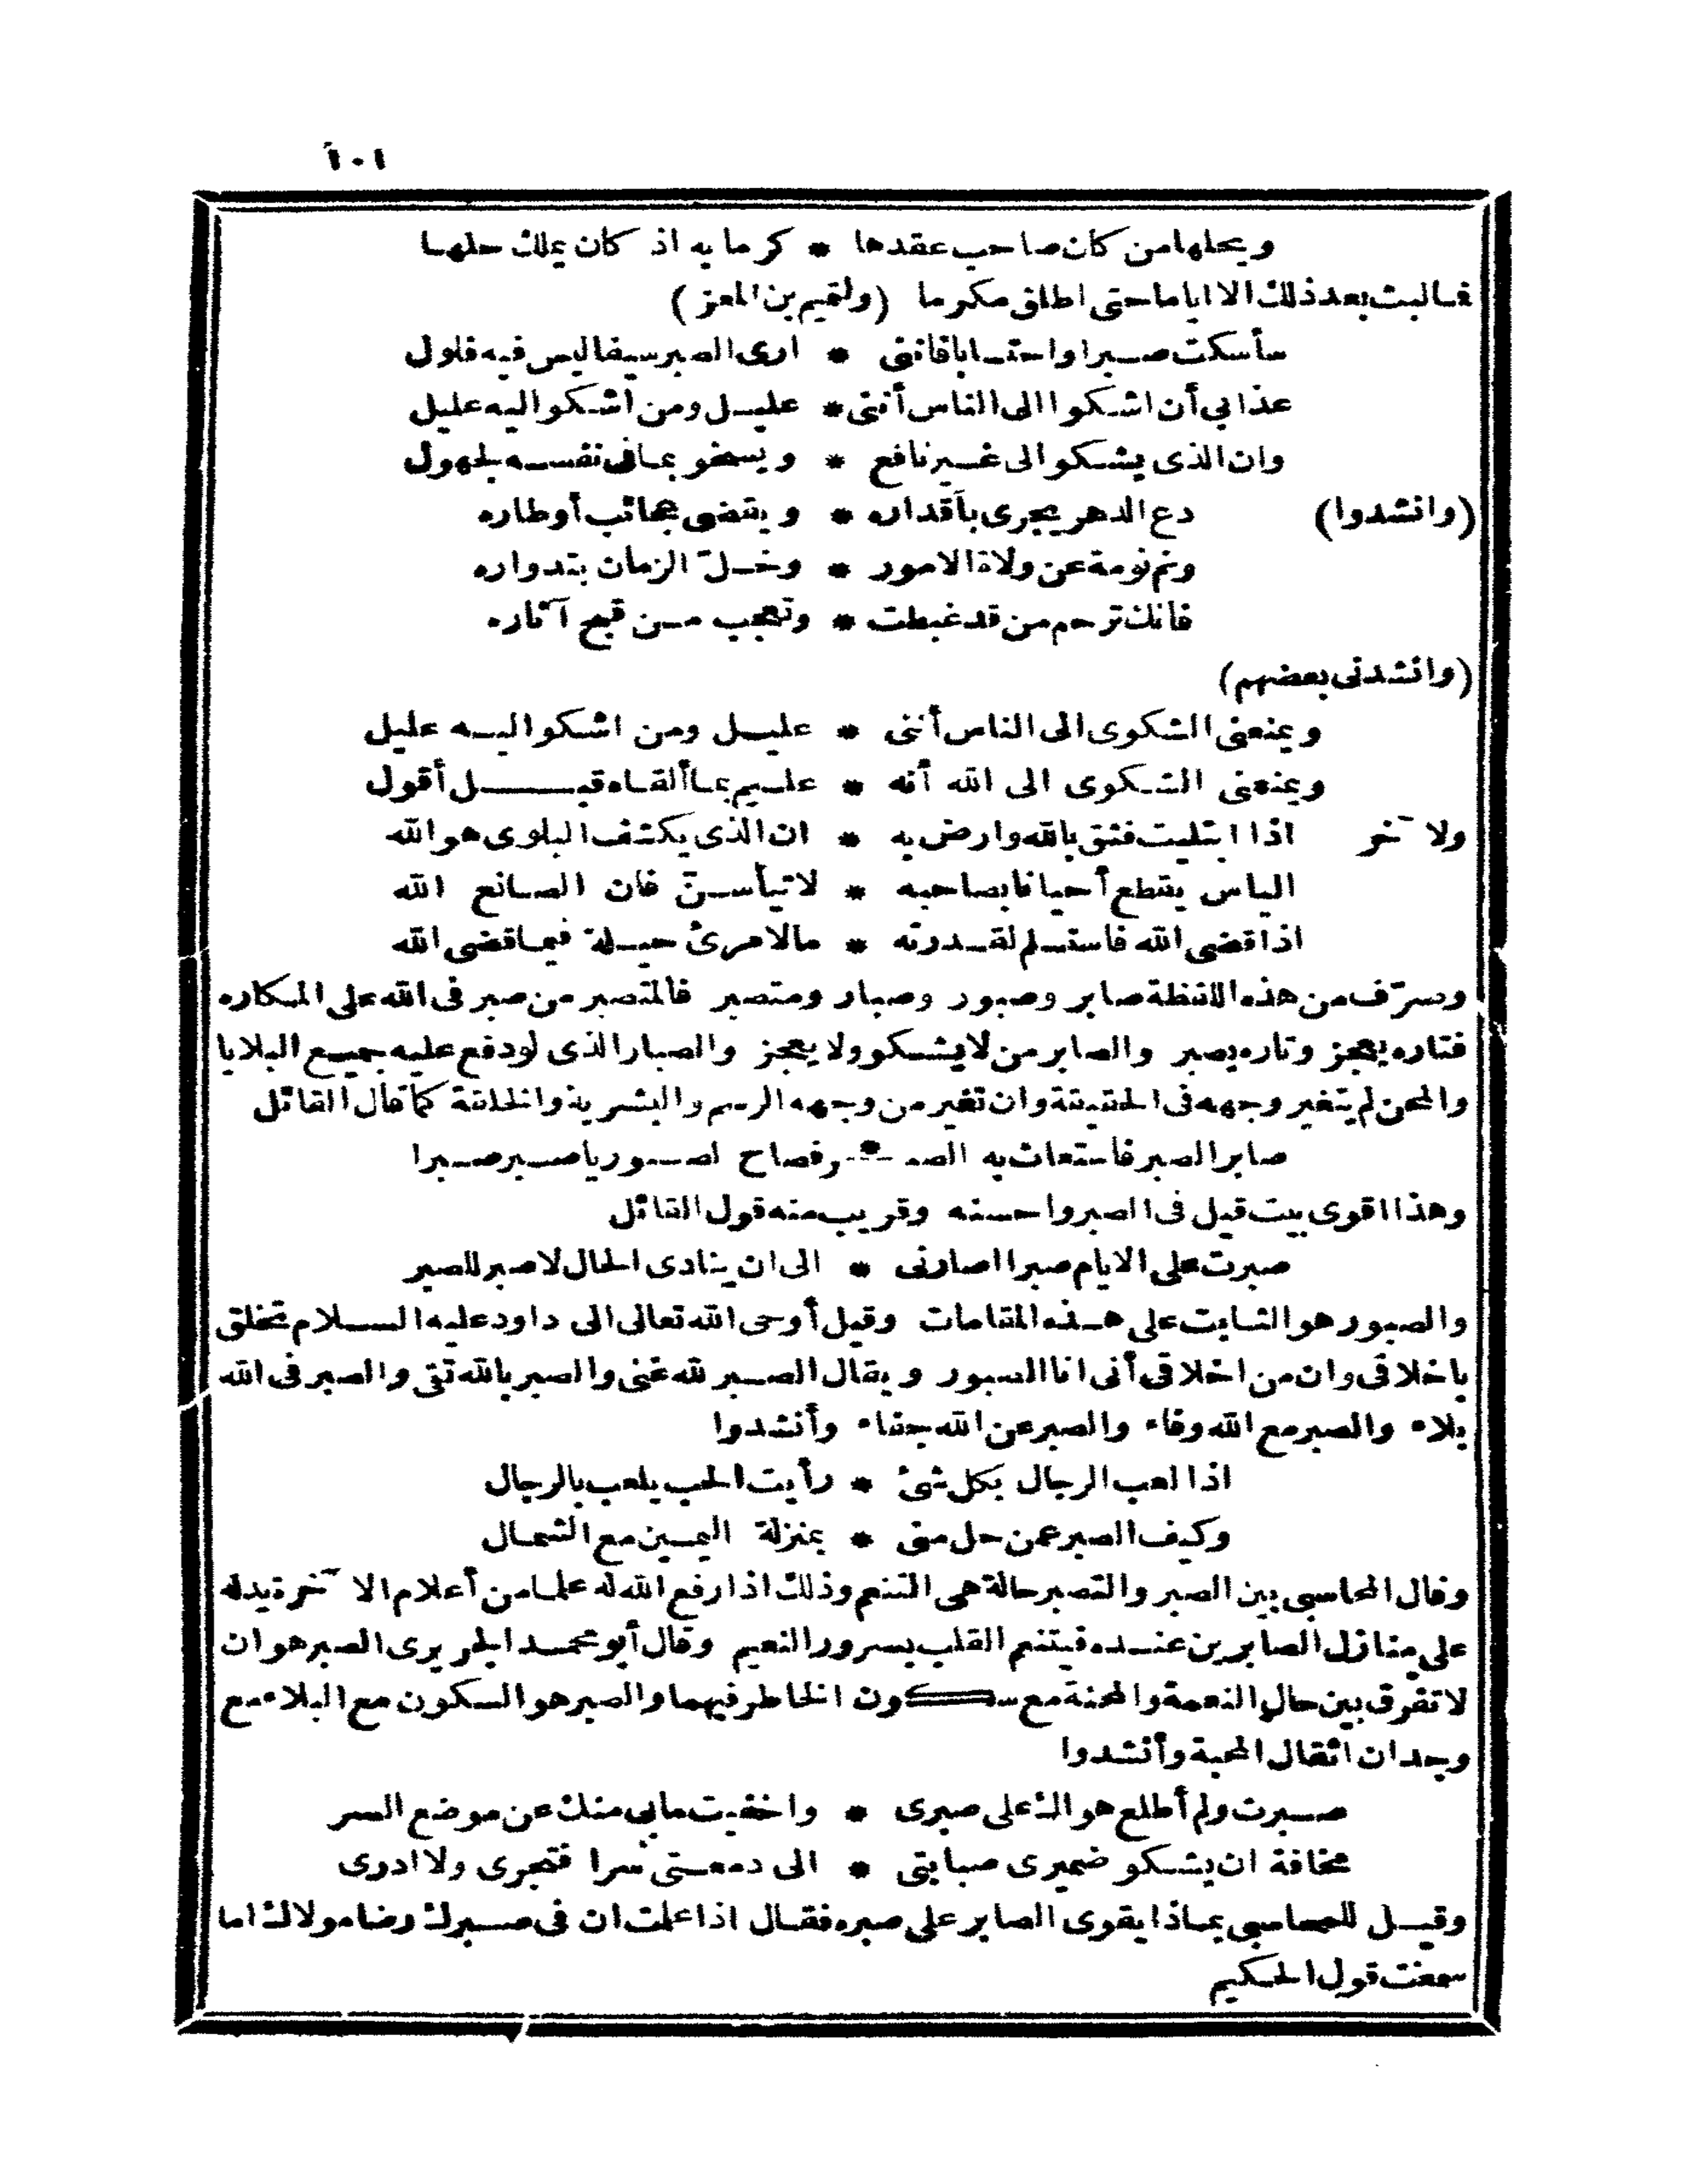 ١٠١
ويحلها من كان صاحب عقدها * كرما به اذ كان يملك حلها
فما لبث بعد ذلك الا اياما حتى اطلق مكرما (ولتميم بن المعز)
سأسكت صبرا واحتسابا فاننى * ارى الصبر سيفا ليس فيه فلول
عذابي أن اشكو الى الناس أننى * عليل ومن اشكو اليه عليل
وان الذى يشكو الى غير نافع * ويسخو بما فى نفسه لجهول
(وانشدوا) دع الدهر يجرى بأقداره * ويقضى عجائب أوطاره
ونم نومة عن ولاة الامور * وخلّ الزمان بتدواره
فانك ترحم من قد غبطت * وتعجب من قبح آثاره
(وانشدنى بعضهم)
ويمنعنى الشكوى الى الناس أننى * عليل ومن اشكو اليه عليل
ويمنعنى الشكوى الى الله أنه * عليم بما ألقاه قبل أقول
ولآخر اذا ابتليت فثق بالله وارض به * ان الذى يكشف البلوى هو الله
الياس يقطع أحيانا بصاحبه * لا تيأسنّ فان الصانع الله
اذا قضى الله فاستسلم لقدرته * ما لامرئ حيلة فيما قضى الله
وصرّف من هذه اللفظة صابر وصبور وصبار ومتصبر فالمتصبر من صبر فى الله على المكاره
فتاره يعجز وتاره يصبر والصابر من لا يشكو ولا يعجز والصبار الذى لو دفع عليه جميع البلايا
والمحن لم يتغير وجهه فى الحقيقة وان تغير من وجهه الرسم والبشرية والخلقة كما قال القائل
صابر الصبر فاستغاث به الصبر فصاح الصبور يا صبر صبرا
وهذا اقوى بيت قيل فى الصبر واحسنه وقريب منه قول القائل
صبرت على الايام صبرا اصارنى * الى ان ينادى الحال لا صبر للصبر
والصبور هو الثابت على هذه المقامات وقيل أوحى الله تعالى الى داود عليه السلام تخلق
باخلاقى وان من اخلاقى أنى انا الصبور ويقال الصبر لله غنى والصبر بالله تقى والصبر فى الله
بلاء والصبر مع الله وفاء والصبر عن الله جفاء وأنشدوا
اذا لعب الرجال بكل شئ * رأيت الحب يلعب بالرجال
وكيف الصبر عمن حل منى * بمنزلة اليمين مع الشمال
وقال المحاسبى بين الصبر والتصبر حالة هى التنعم وذلك اذا رفع الله له علما من أعلام الآخرة يدله
على منازل الصابرين عنده فيتنعم القلب بسرور النعيم وقال أبو محمد الجريرى الصبر هو ان
لا تفرق بين حال النعمة والمحنة مع سكون الخاطر فيهما والصبر هو السكون مع البلاء مع
وجدان اثقال المحبة وأنشدوا
صبرت ولم أطلع هواك على صبرى * واخفيت مابى منك عن موضع السر
مخافة ان يشكو ضميرى صبابتى * الى دمعتى سرا فتجرى ولا ادرى
وقيل للمحاسبى بماذا يقوى الصابر على صبره فقال اذا علمت ان فى صبرك رضا مولاك اما
سمعت قول الحكيم